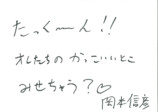 たっくーん!!
オレたちの かっこいいとこ
みせちゃう?♡
岡本信彦